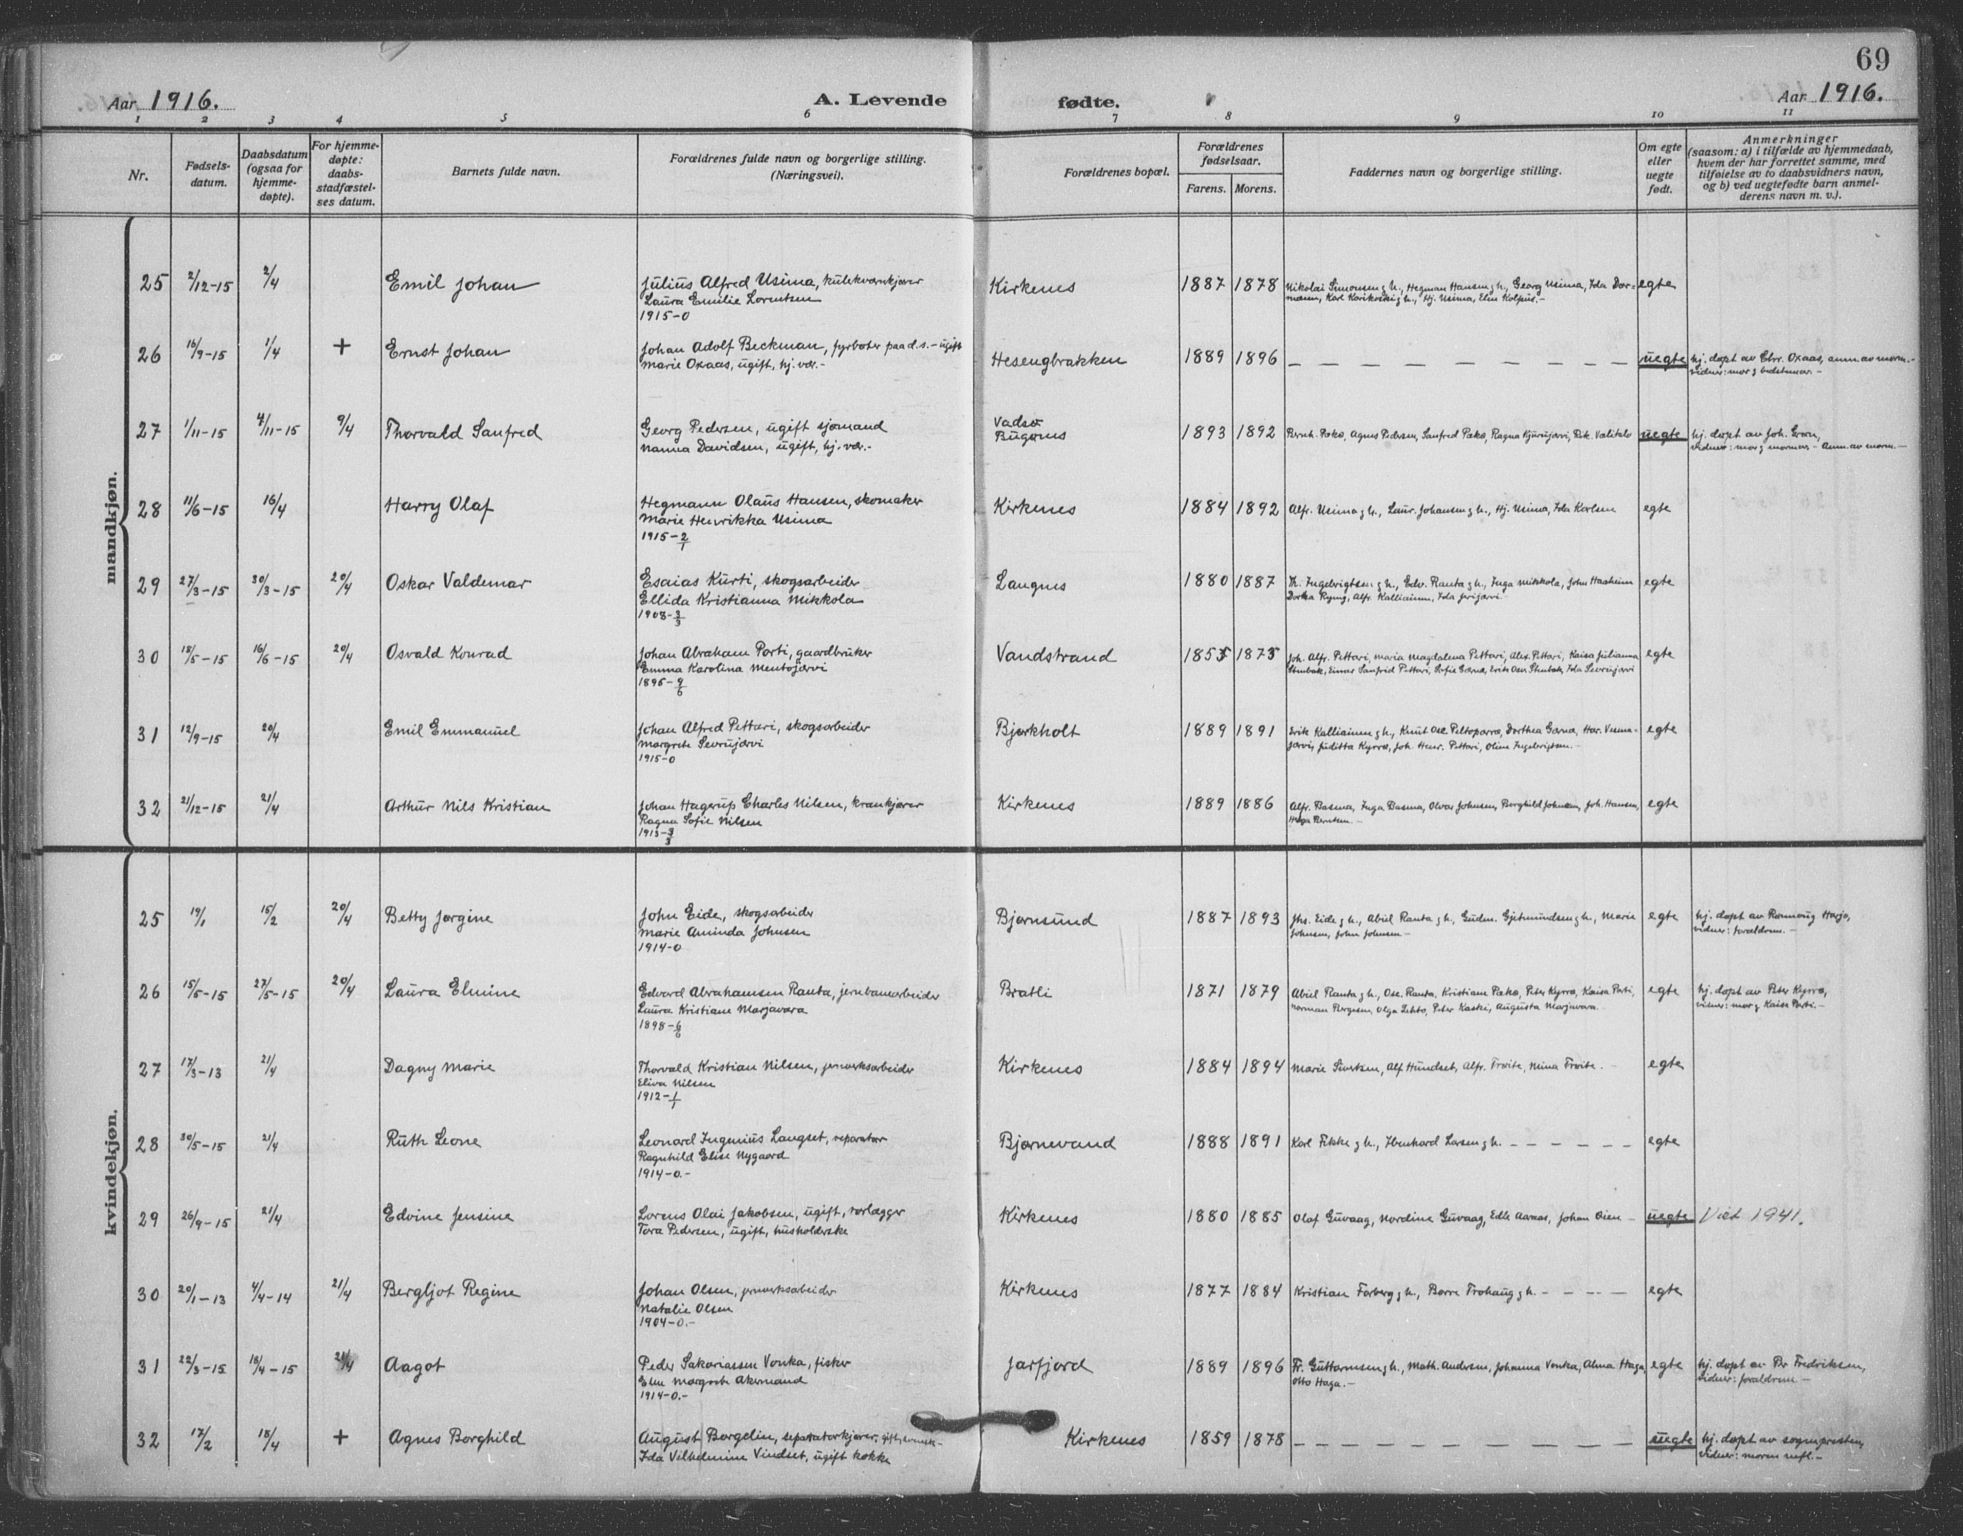 69
Aar 1916.
A. Levende fødte.
Aar 1916.
1 2 3 4 5 6 7 8 9 10 11
Nr.
Fødsels-
datum.
Daabsdatum
(ogsaa for
hjemme-
døpte).
For hjemme-
døpte:
daabs-
stadfæstel-
ses datum.
Barnets fulde navn.
Forældrenes fulde navn og borgerlige stilling.
(Næringsvei).
Forældrenes bopæl.
Forældrenes
fødselsaar.
Farens. Morens.
Faddernes navn og borgerlige stilling.
Om egte
eller
uegte
født.
Anmerkninger
(saasom: a) i tilfælde av hjemmedaab,
hvem der har forrettet samme, med
tilføielse av to daabsvidners navn,
og b) ved uegtefødte barn anmel-
derens navn m. v.).
mandkjøn.
25 2/12-15 2/4 Emil Johan Julius Alfred Usima, kulekværnkjører Kirkenes 1887 1878 Nikolai Simonsen g h., Hegman Hansen g h., Georg Usima, Ida Dor- egte
Laura Emilie Lorentsen mann, Karl Karikoski g h., Hj. Usima, Elin Kolpus. -
1915-0
26 16/9-15 1/4 + Ernst Johan Johan Adolf Beckman, fyrbøter paa d.s. - ugift Hesengbrakken 1889 1896 - - - - - - - - uegte hj. døpt av Ebrr. Oxaas, anm. av morm. -
Marie Oxaas, ugift, hj. vær. - vidner: mor g bedstemor. -
27 1/11-15 4/11-15 9/4 Thorvald Sanfred Georg Pedersen, ugift sjømand Vadsø 1893 1892 Bernh. Pakø, Agnes Pedersen, Sanfred Pakø, Ragna Kjurujarvi, Rik. Valitalo uegte hj. døpt av Joh. Grøn,
Nanna Davidsen, ugift, hj. vær. - Bugønes vidner: mor g mormor. - Anm. av morm. -
28 11/6-15 16/4 Harry Olaf Hegmann Olaus Hansen, skomaker Kirkenes 1884 1892 Alfr. Usima g h., Laur. Johansen g h., Hj. Usima, Ida Karlsen egte
Marie Henrikka Usima
1915-2/1
29 27/3-15 30/3-15 20/4 Oskar Valdemar Esaias Kurti, skogsarbeider Langnes 1880 1887 H. Ingebrigtsen g h., Edv. Ranta g h., Inga Mikkola, John Haaheim egte
Ellida Kristianna Mikkola Dorthea Ryeng, Alfr. Kalliainen, Ida Jerijærvi. -
1908-2/3
30 18/5-15 16/6-15 20/4 Osvald Konrad Johan Abraham Porti, gaardbruker Vandstrand 1855 1875 Joh. Alfr. Pettari, Maria Magdalena Pettari, Alex. Pettari, Kaisa Julianna egte
Emma Karolina Mentojærvi Stenbak, Einar Sanfrid Pettari, Sofie Gærnæ, Erik Osv. Stenbak, Ida Sevrujarvi
1895-9/6
31 12/9-15 20/4 Emil Emmanuel Johan Alfred Pettari, skogsarbeider Bjørkholt 1889 1891 Erik Kalliainen g h., Knut Osc. Peltoparra, Dorthea Gærnæ, Har. Vesma- egte
Margrete Sevrujærvi jærvi, Juditta Kyrrø, Joh. Henr. Pettari, Oline Ingebrigtsen. -
1915-0
32 21/12-15 21/4 Arthur Nils Kristian Johan Hagerup Charles Nilsen, krankjører Kirkenes 1889 1886 Alfr. Dasma, Inga Dasma, Olvar Johnsen, Borghild Johnsen, Joh. Hansen, egte
Ragna Sofie Nilsen Helga Berntsen. -
1915-3/3
kvindekjøn.
25 19/1 15/2 20/4 Betty Jørgine John Eide, skogsarbeider Bjørnsund 1887 1893 Jhs. Eide g h., Abiel Ranta g h., Gudm. Gjetmundsen g h., Marie egte hj. døpt av Rønnaug Harjo,
Marie Aminda Johnsen Johnsen, John Johnsen - vidner: forældrene. -
1914-0
26 15/5-15 27/5-15 20/4 Laura Elmine Edvard Abrahamsen Ranta, jernbanearbeider Bratli 1871 1879 Abiel Ranta g h., Osc. Ranta, Kristiane Pakø, Peter Kyrrø, Kaisa Porti, egte hj. døpt av Peter Kyrrø,
Laura Kristiane Marjavara Norman Børgesen, Olga Lehto, Peter Kaski, Augusta Marjavara vidner: mor g Kaisa Porti. -
1898-6/6
27 17/3-13 21/4 Dagny Marie Thorvald Kristian Nilsen, jernverksarbeider Kirkenes 1884 1894 Marie Sivertsen, Alf Hundset, Alfr. Trøite, Mina Trøite. - egte
Eliva Nilsen
1912-1/1
28 30/5-15 21/4 Ruth Leone Leonard Ingenius Langset, reparatør Bjørnevand 1888 1891 Karl Fikke g h., Ibenhard Larsen g h. - - - - - - egte
Ragnhild Elise Nygaard
1914-0.-
29 26/9-15 21/4 Edvine Jensine Lorens Olai Jakobsen, ugift, rørlægger Kirkenes 1880 1885 Olaf Guvaag, Nordine Guvaag, Edle Aarnas, Johan Oien - uegte Viet 1941.
Tora Pedersen, ugift, husholderske
30 20/1-13 4/4-14 21/4 Bergljot Regine Johan Olsen, jernverksarbeider Kirkenes 1877 1884 Kristian Forberg g h., Børre Frohaug g h. - - - - - egte
Natalie Olsen
1904-0.-
31 22/3-15 18/4-15 21/4 Aagot Peder Sakariassen Vonka, fisker Jarfjord 1889 1896 Fr. Guttormsen g h., Math. Andersen, Johanna Vonka, Alma Haga, egte hj. døpt av Pr Fredriksen,
Elen Margrete Akermand Otto Haga. - vidner: forældrene -
1914-0.-
32 17/2 18/4 + Agnes Borghild August Borgelin, separatorkjører, gift, Kirkenes 1859 1878 - - - - - - - uegte hj. døpt av sognepresten,
Ida Vilhelmine Vindset, ugift kokke vidner: moren